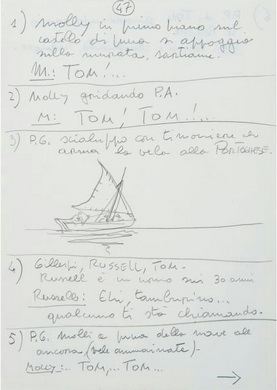 47
1) Molly in primo piano sul
catolo di prua si appoggia
sulla murata,
M: TOM!...
2) Molly gridando P.A.
M: TOM! TOM!...
3) P.G. scialuppa con timoniere ed
arma la vela alla PORTOGHESE.
4) Gillespi, RUSSELL, TOM.
Russell è un uomo sui 30 anni
Russell: Ehi, tamburino...
qualcuno ti sta chiamando.
5) P.G. Molli a prua della nave all'
ancora (vele ammainate).
Molly: ... TOM, ... TOM...